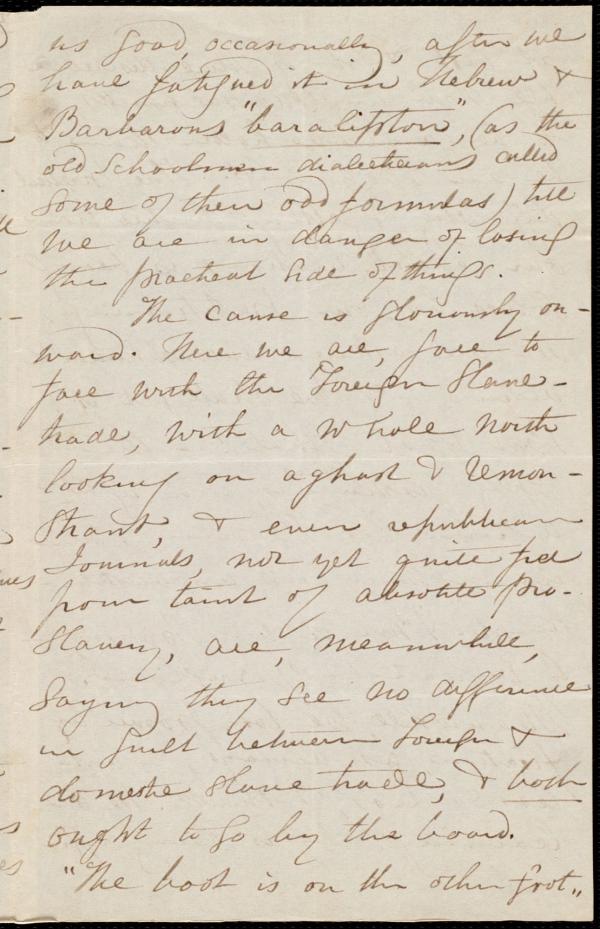 us good, occasionally, after we
have fatigued it in Hebrew &
Barbarous "baralipton", (as the
old Schoolmen dialecticians called
some of their odd formulas) till
we are in danger of losing
the practical side of things.
The cause is gloriously on-
ward. Here we are, face to
face with the Foreign Slave-
trade, with a whole North
looking on aghast & remon-
strant, & even republican
Journals, not yet quite free
from taint of absolute pro-
slavery, are, meanwhile,
saying they see no difference
in guilt between Foreign &
domestic slave trade, & both
ought to go by the board.
"The boot is on the other foot"